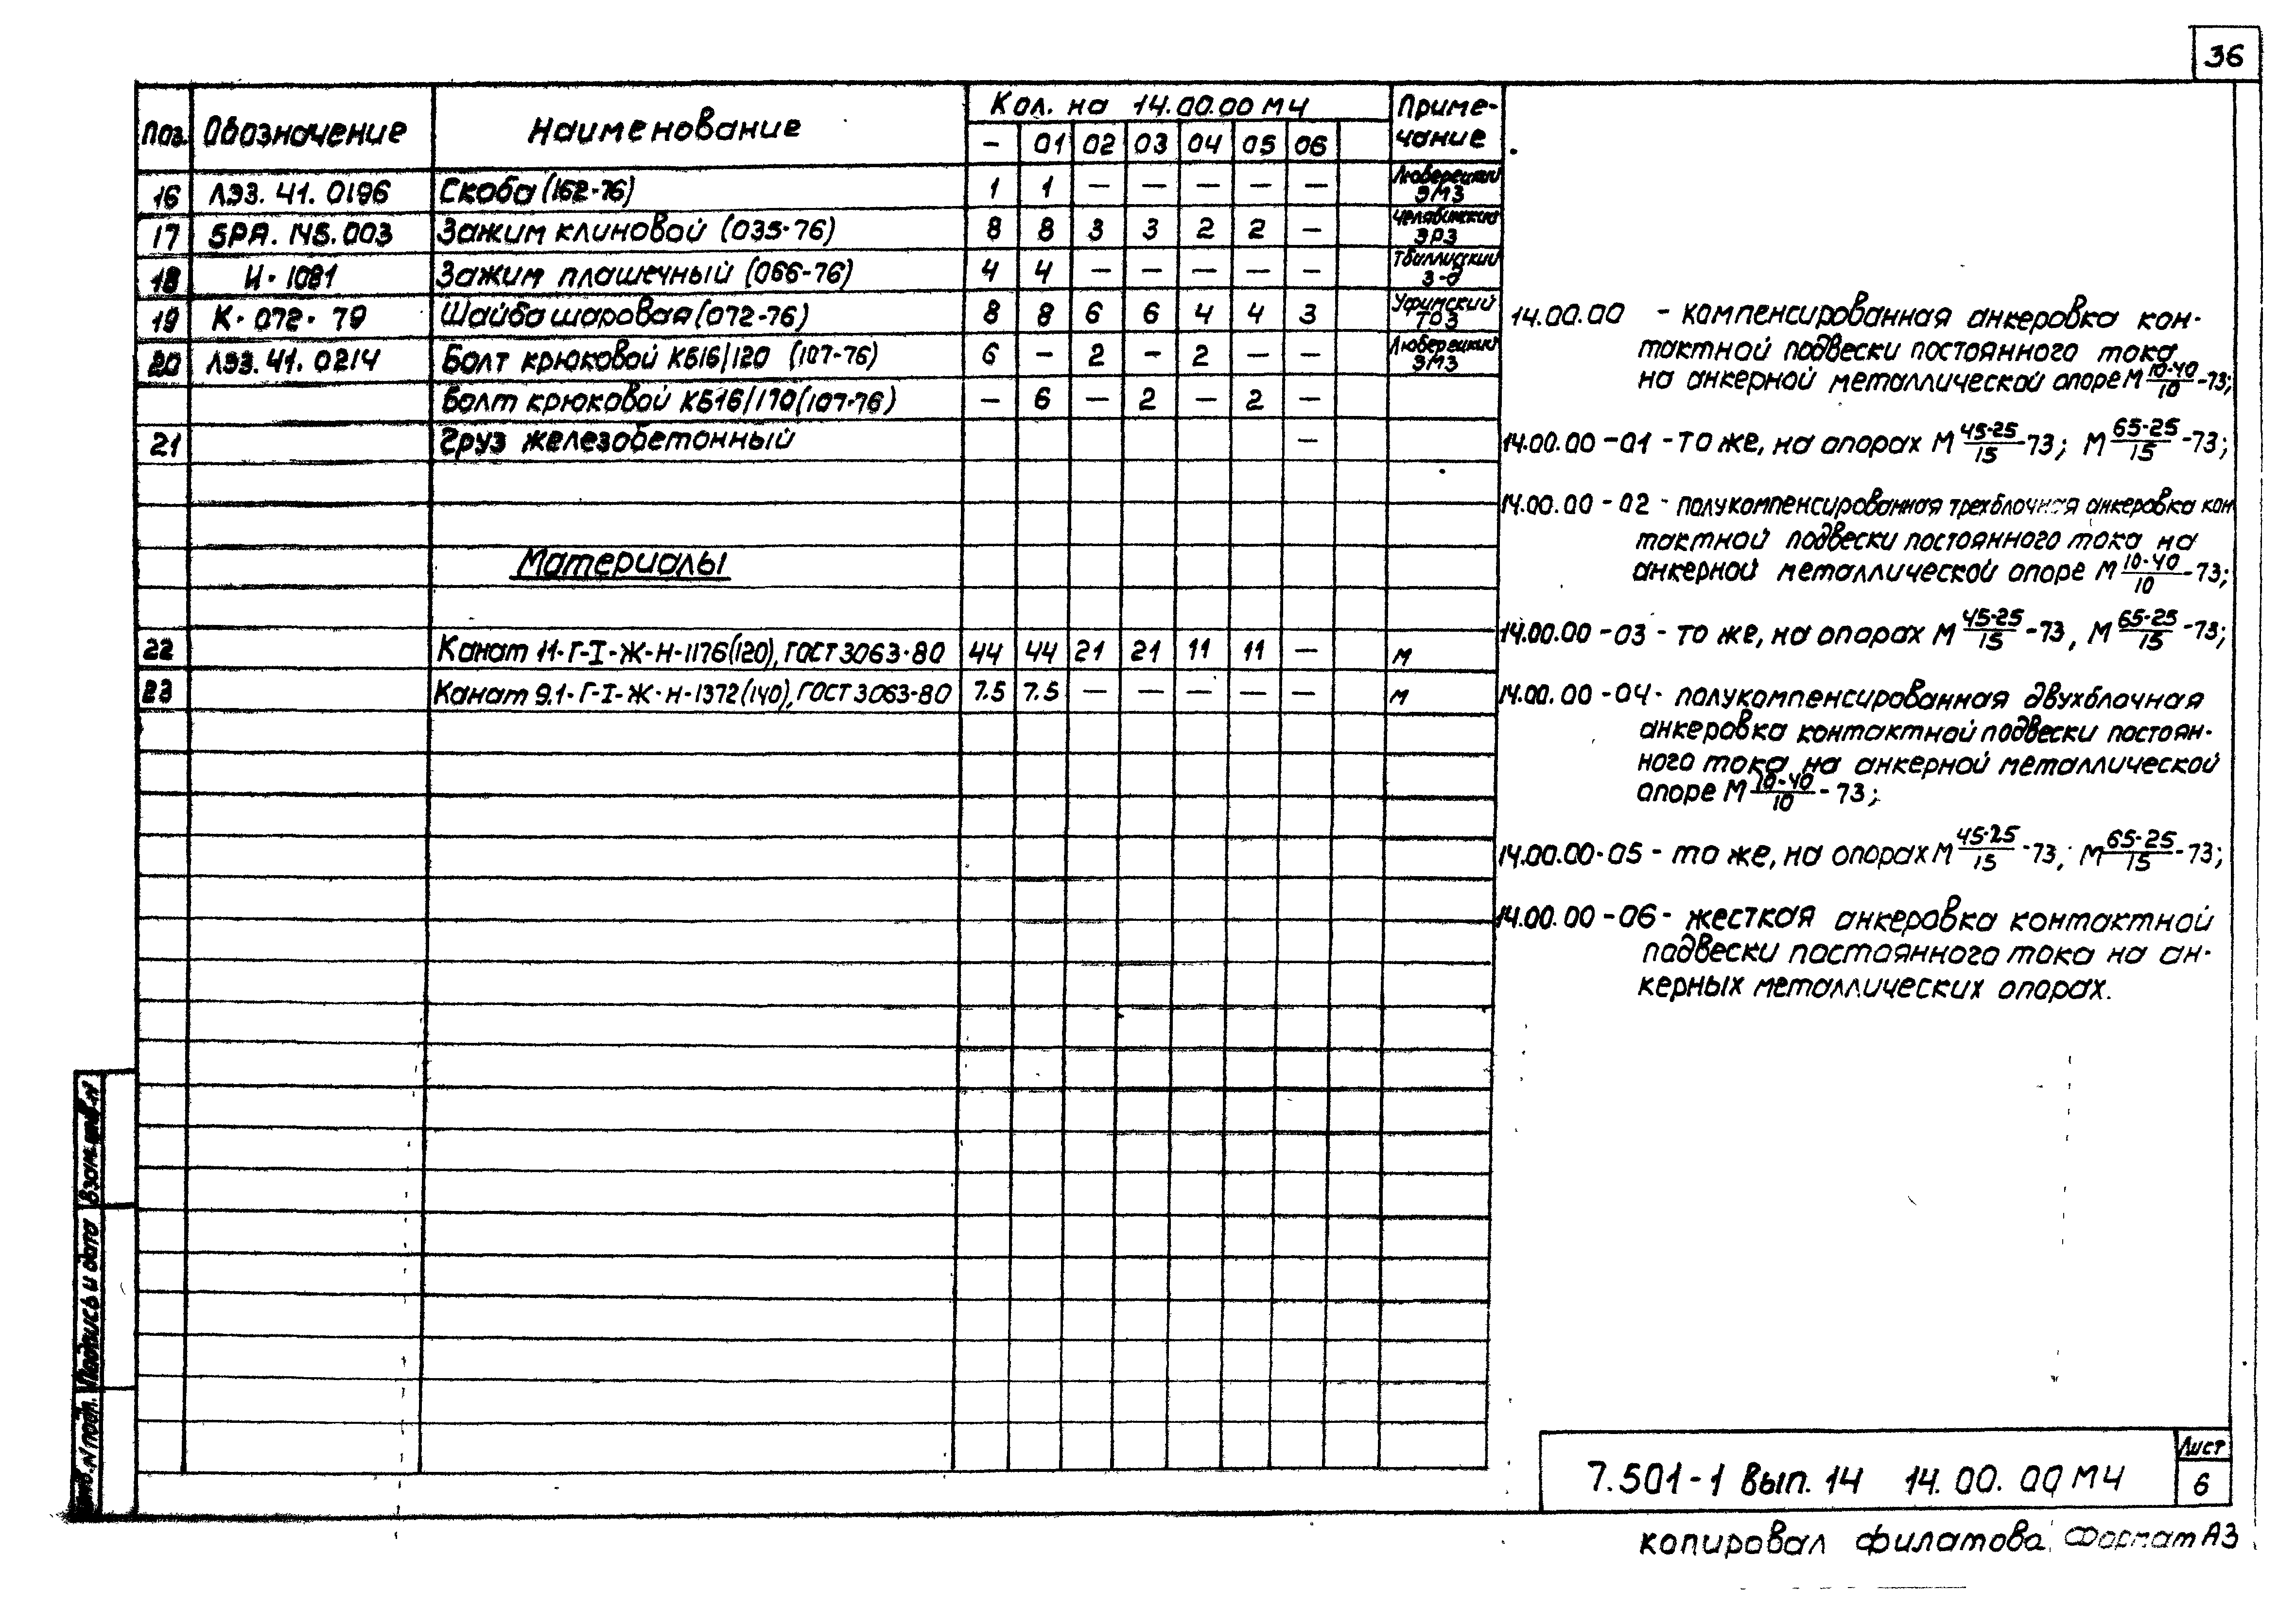 36
Поз. Обозначение Наименование Кол. на 14.00.00 МЧ Приме-
чание
- 01 02 03 04 05 06
16 ЛЭЗ. 41. 0196 Скоба (162-76) 1 1 — — — — — Люберецкий ЭМЗ
17 5РА. 145. 003 Зажим клиновой (035-76) 8 8 3 3 2 2 — Челябинский ЭРЗ
18 И-1081 Зажим плашечный (066-76) 4 4 — — — — — Тбилисский з-д
19 К-072-79 Шайба шаровая (072-76) 8 8 6 6 4 4 3 Уфимский ТОЗ
20 ЛЭЗ. 41. 0214 Болт крюковой КБ16/120 (107-76) 6 — 2 — 2 — — Люберецкий ЭМЗ
Болт крюковой КБ16/170 (107-76) — 6 — 2 — 2 —
21 Груз железобетонный —
Материалы
22 Канат 11-Г-I-Ж-Н-1176(120), ГОСТ 3063-80 44 44 21 21 11 11 — м
23 Канат 9.1-Г-I-Ж-Н-1372(140), ГОСТ 3063-80 7.5 7.5 — — — — — м
14.00.00 - компенсированная анкеровка кон-
тактной подвески постоянного тока
на анкерной металлической опоре М 10-40/10 -73;
14.00.00-01 - то же, на опорах М 45-25/15 -73; М 65-25/15 -73;
14.00.00-02 - полукомпенсированная трехблочная анкеровка кон
тактной подвески постоянного тока на
анкерной металлической опоре М 10-40/10 -73;
14.00.00-03 - то же, на опорах М 45-25/15 -73, М 65-25/15 -73;
14.00.00-04 - полукомпенсированная двухблочная
анкеровка контактной подвески постоян-
ного тока на анкерной металлической
опоре М 10-40/10 -73;
14.00.00-05 - то же, на опорах М 45-25/15 -73; М 65-25/15 -73;
14.00.00-06 - жесткая анкеровка контактной
подвески постоянного тока на ан-
керных металлических опорах.
Взам. инв. N
Подпись и дата
Инв. N подл.
7.501-1 Вып. 14 14.00.00 МЧ
Лист
6
копировал филатова Формат А3